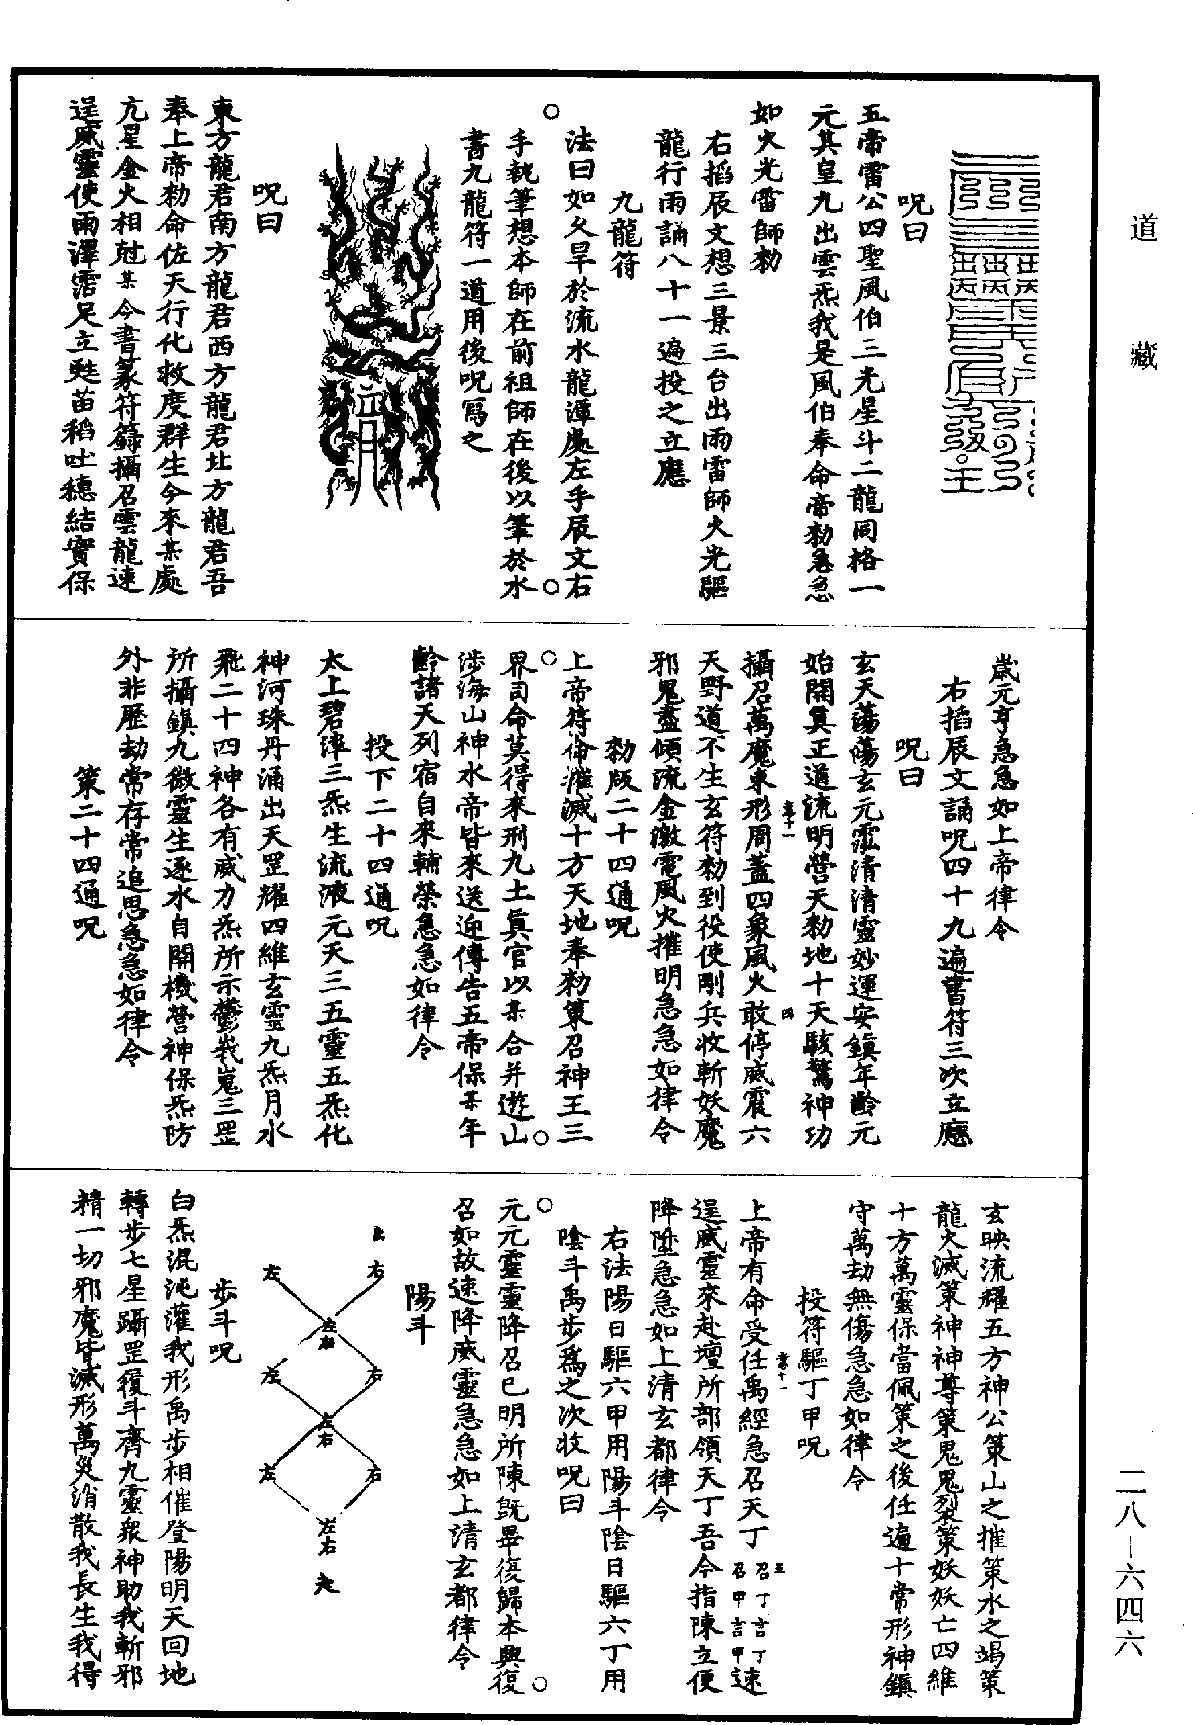 道藏
呪曰
五帝雷公四聖風伯三光星斗二龍同格一
元其皇九出雲炁我是風伯奉命帝勑急急
如火光雷師勑
右搯辰文想三景三台出雨雷師火光驅
龍行雨誦八十一遍投之立應
九龍符
法曰如久旱於流水龍潭處左手辰文右
手執筆想本師在前祖師在後以筆於水
書九龍符一道用後呪寫之
呪曰
東方龍君南方龍君西方龍君北方龍君吾
奉上帝勑命佐天行化救度群生今來某處
亢星金火相尅某今書篆符籙攝召雲龍速
逞威靈使雨澤霑足立甦苗稻吐穗結實保
歲元亨急急如上帝律令
右搯辰文誦呪四十九遍書符三次立應
呪曰
玄天蕩蕩玄元霐清清靈妙運安鎮年齡元
始開真正道流明營天勑地十天駭驚神功
攝召萬魔束形周蓋四象風火敢停威震六
天野道不生玄符勑到役使剛兵收斬妖魔
邪鬼盡傾流金激電風火摧明急急如律令
勑版二十四通呪
上帝符侖摧滅十方天地奉勑策召神王三
界司命莫得來刑九土真官以某合并遊山
涉海山神水帝皆來送迎傳告五帝保某年
齡諸天列宿自來輔榮急急如律令
投下二十四通呪
太上碧津三炁生流液元天三五靈五炁化
神河珠丹涌出天罡耀四維玄靈九炁月水
飛二十四神各有威力炁所示鬱峩嵬三罡
所攝鎮九微靈生逐水自開機營神保炁防
外非歷劫常存常追思急急如律令
策二十四通呪
玄映流耀五方神公策山之摧策水之竭策
龍火滅策神神尊策鬼鬼裂策妖妖亡四維
十方萬靈保當佩策之後任遍十常形神鎮
守萬劫無傷急急如律令
投符驅丁甲呪
上帝有命受任禹經急召天丁至召丁言丁召甲言甲速
逞威靈來赴壇所部領天丁吾今指陳立便
降墮急急如上清玄都律令
右法陽日驅六甲用陽斗陰日驅六丁用
陰斗禹步為之次收呪曰
元元靈靈降召已明所陳既畢復歸本興復
召如故速降威靈急急如上清玄都律令
陽斗
右
左
左右
右
左
左右
右
左
左右
步斗呪
白炁混沌灌我形禹步相催登陽明天回地
轉步七星躡罡履斗齊九靈衆神助我斬邪
精一切邪魔皆滅形萬災消散我長生我得
二八—六四六